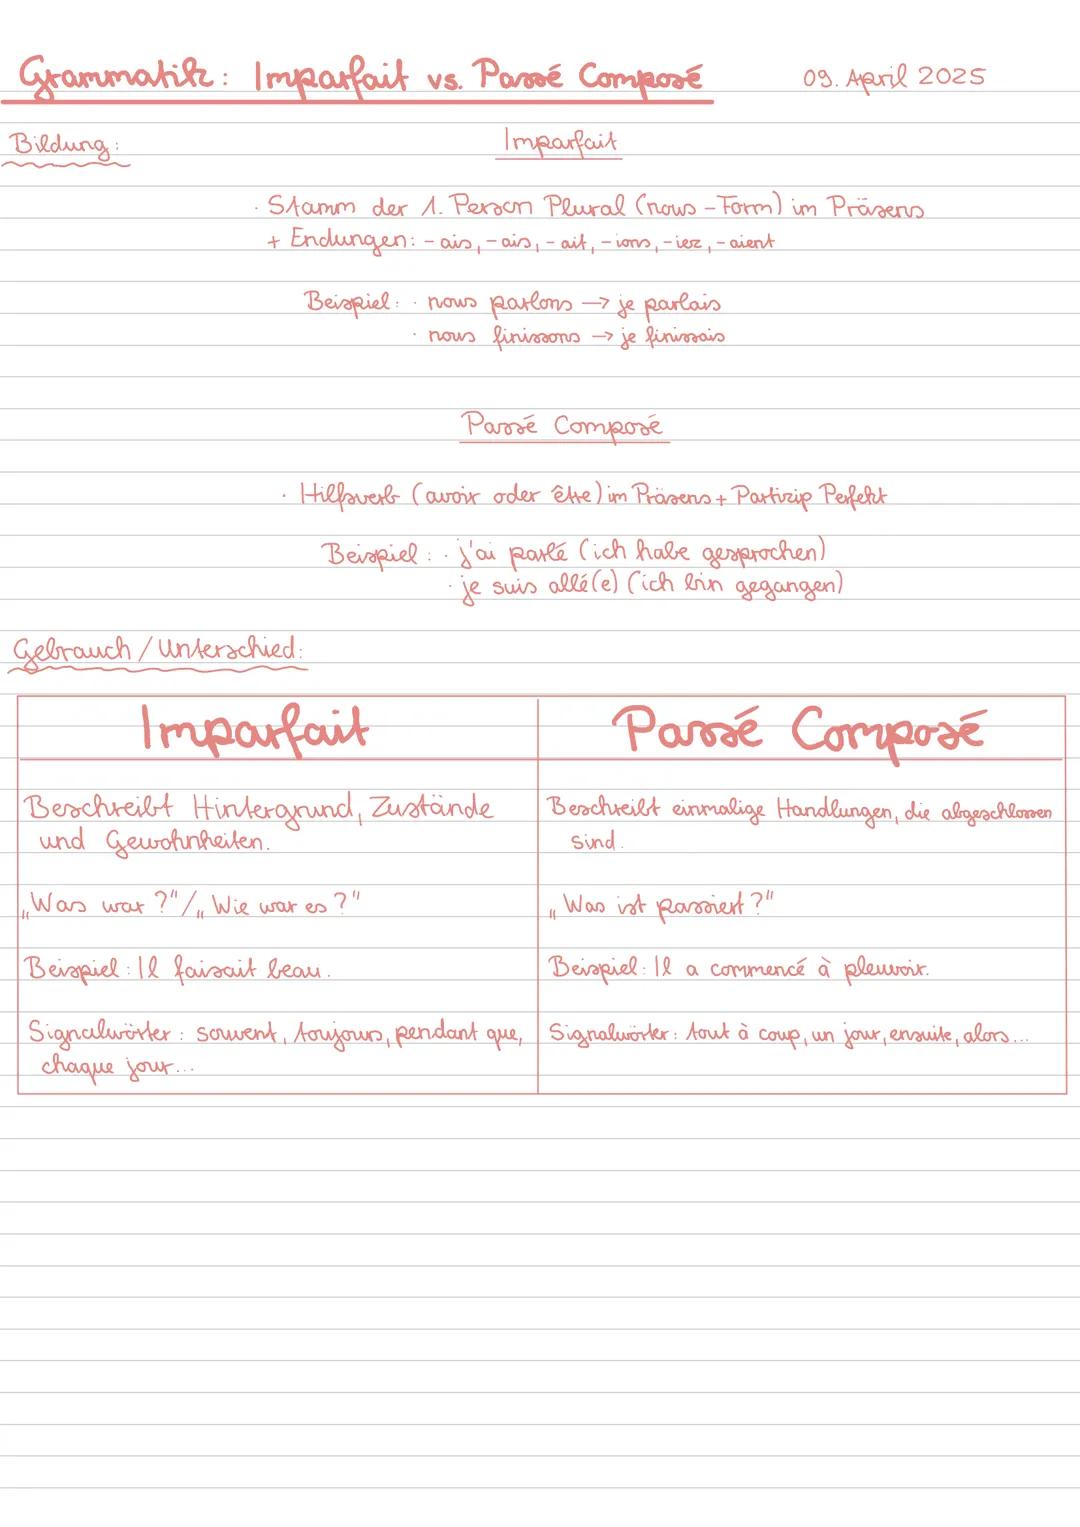 Grammatik: Imparfait vs. Passé Composé 09. April 2025
Bildung:
Imparfait
· Stamm der 1. Person Plural (nous-Form) im Präsens
+ Endungen: -ais, -ais, -ait, -ions, -iez, -aient
Beispiel: · nous parlons → je parlais
· nous finissons → je finissais
Passé Composé
· Hilfsverb (avoir oder être) im Präsens + Partizip Perfekt
Beispiel: · j'ai parlé (ich habe gesprochen)
· je suis allé(e) (ich bin gegangen)
Gebrauch / Unterschied:
Imparfait
Beschreibt Hintergrund, Zustände
und Gewohnheiten.
„Was war?"/„Wie war es?"
Beispiel: Il faisait beau.
Signalwörter: souvent, toujours, pendant que,
chaque jour...
Passé Composé
Beschreibt einmalige Handlungen, die abgeschlossen
sind.
„Was ist passiert?"
Beispiel: Il a commencé à pleuvoir.
Signalwörter: tout à coup, un jour, ensuite, alors...